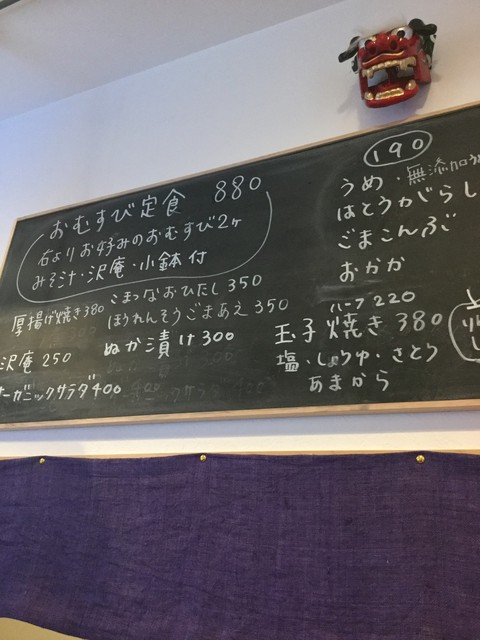 おむすび定食 880
右よりお好みのおむすび2ヶ
みそ汁・沢庵・小鉢付
厚揚げ焼き380
こまつなおひたし350
ほうれんそうごまあえ350
沢庵250
ぬか漬け300
ーガニックサラダ400
190
うめ・無添加
はとうがらし
ごまこんぶ
おかか
ハーフ220
玉子焼き380
塩・しょうゆ・さとう
あまから